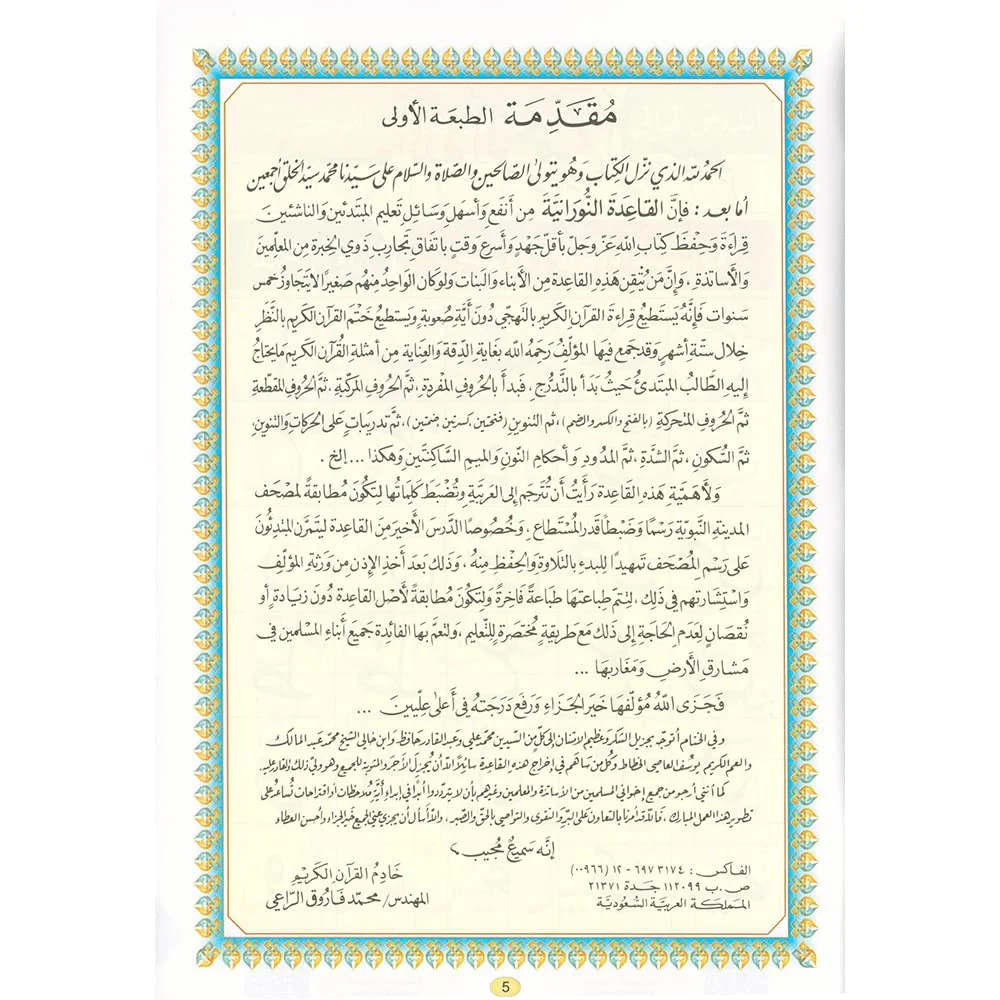 مُقَدِّمَة الطبعَة الأولى
الحمدُ للّه الذي نزّل الكِتاب وَهُو يتولى الصّالحين والصّلاة والسّلام على سَيّدنا محمّد سيّد الخلق أجمعين
أما بعد : فإنَّ القَاعِدَة النُّورَانيَّة مِن أنفَع وَأسهَل وسَائِل تعليم المبتدئين والناشئين
قِرَاءَة وَحِفظ كِتاب اللّه عَزّ وَجلّ بأقلّ جَهدٍ وَأسرَع وقتٍ باتفاق تجارب ذوي الخِبرة مِن المعلِّمين
وَالأسَاتذة ، وَإنَّ مَن يُتقِن هَذِهِ القَاعِدة مِن الأبناء وَالبنات وَلو كان الوَاحِدُ منهُم صَغيرًا لا يتجَاوز خمس
سَنوات فَإنَّهُ يَستطِيعُ قِراءةَ القرآن الكَريم بالتّهجّي دُونَ أيّة صُعوبةٍ وَيستطيعُ خَتم القرآن الكريم بالنَّظَر
خِلال سِتّة أشهرٍ وَقد جمع فيها المؤلّفُ رَحِمهُ اللّه بغَاية الدِّقة والعِناية مِن أمثلة القُرآن الكَريم مَا يحتاجُ
إليه الطَّالبُ المبتَدئُ حَيثُ بَدَأ بالتَّدرُّج ، فبدأ بالحُروف المُفردَة ، ثمَّ الحُروف المركّبة ، ثمَّ الحُروف المُقطّعة
ثمَّ الحُروف المتحركة (بالفتح والكسر والضم) ، ثم التنوين (فتحتين كسرتين ضمتين) ، ثمَّ تدريباتٍ على الحركاتِ وَالتّنوين
ثمَّ السُّكون ، ثمَّ الشدَّة ، ثمَّ المدُود وَأحكام النُّون والميم السَّاكنَتَين وَهكذا ... إلخ .
وَلأهَميَّة هَذِهِ القَاعِدة رَأيتُ أن تُتَرجَم إلى العَربيَّة وتُضبَط كلماتُها لِتكُون مُطابقةً لمصحَف
المدينة النَّبويّة رَسمًا وَضَبطًا قدر المُستَطاع ، وَخُصُوصًا الدَّرس الأخير مِن القاعدة ليتمَرّن المبتدِئُون
عَلى رَسم المُصحَف تمهيدًا للبدء بالتِّلاوة وَالحِفظ مِنهُ ، وَذلك بَعد أخذ الإذن مِن وَرثة المؤلِّف
وَاستِشَارتهم في ذلِك ، ليَتم طِبَاعتها طبَاعةً فَاخِرةً وَلتكُون مُطابقةً لأصل القاعدة دُون زيَادة أو
نُقصَان لِعدَم الحَاجة إلى ذلك مَع طَريقة مُختصَرة للتّعليم ، وَلتعُمّ بها الفائدة جَميع أبناء المسلمين في
مشارق الأرض وَمَغاربها ...
فَجَزى اللّه مُؤلّفها خَيرَ الجَزاء وَرَفع دَرَجتهُ في أعلى عِلّيين ...
وفي الختام أتوجّه بجزيل الشكر وعظيم الامتنان إلى كلٍّ من السيدين محمد علي وعبد القادر حافظ وابن خالي الشيخ محمد عبد المالك
والعم الكريم يوسف العاصي الخطاط وكُل من سَاهم في إخراج هذه القاعدة سائلاً اللّه أن يُجزل الأجر والمثوبة للجميع وهو ولي ذلك والقادر عليه.
كما أنني أرجو من جميع إخواني المسلمين من الأساتذة والمعلمين وغيرهم بأن لا يترددوا أبداً في إبداء أيّة مُلاحظات أو اقتراحات تُساعدُ على
تطوير هذا العمل المبارك ، فاللّه قد أمرنا بالتعاون على البرِّ والتقوى والتواصي بالحق والصبر ، واللّه أسأل أن يجزي عني الجميع خير الجزاء وأحسن العطاء
إنّه سَميعٌ مُجيب
الفاكس : ٦٩٧٣١٧٤ - ١٢ (٠٠٩٦٦)
ص.ب ١١٢٠٩٩ جدة ٢١٣٧١
المملكة العربيَّة السُّعوديَّة
خَادِمُ القرآن الكَريم
المهندس/ محمّد فَارُوق الرّاعي
5